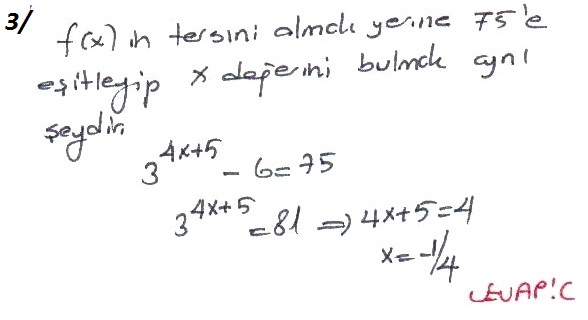 3/ f(x) in tersini almak yerine 75'e
eşitleyip x değerini bulmak aynı
şeydir.
3^{4x+5} - 6 = 75
3^{4x+5} = 81 ⇒ 4x+5=4
x = -1/4
CEVAP:C